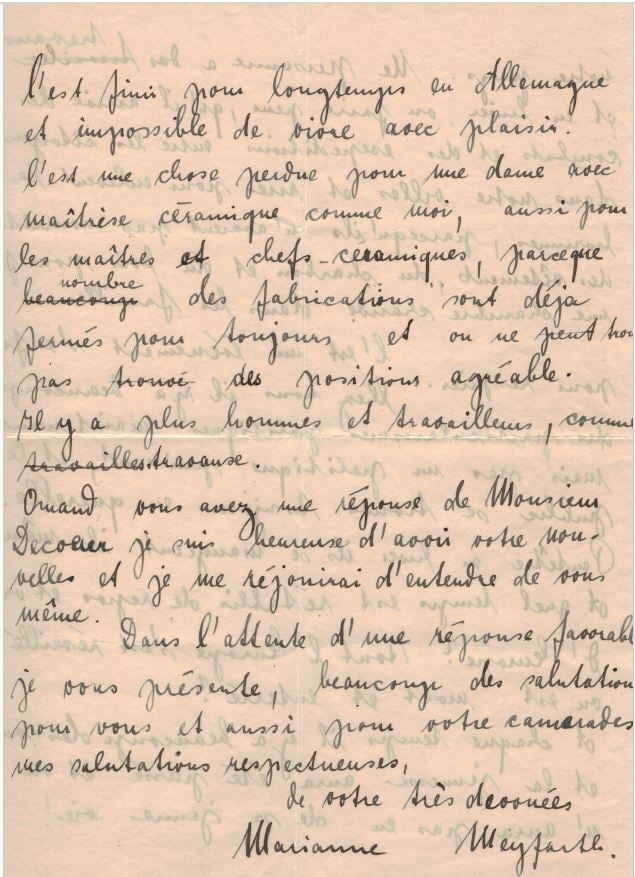 C'est fini pour longtemps en Allemagne
et impossible de vivre avec plaisir.
C'est une chose perdue pour une dame avec
maîtrèse céramique comme moi, aussi pour
les maîtres et chefs-céramiques, parceque
beaucoup nombre des fabrications sont déja
fermés pour toujours et on ne peut trou
pas trouvé des positions agréable.
Il y a plus hommes et travailleurs, comme
travailles. travause.
Quand vous avez une réponse de Monsieur
Decoeur je suis heureuse d'avoir votre nou-
velles et je me réjouirai d'entendre de vous
même.
Dans l'attente d'une réponse favorabl
je vous présente, beaucoup des salutation
pour vous et aussi pour votre camerades
mes salutations respectueuses,
de votre très devouées
Marianne Meyfarth.